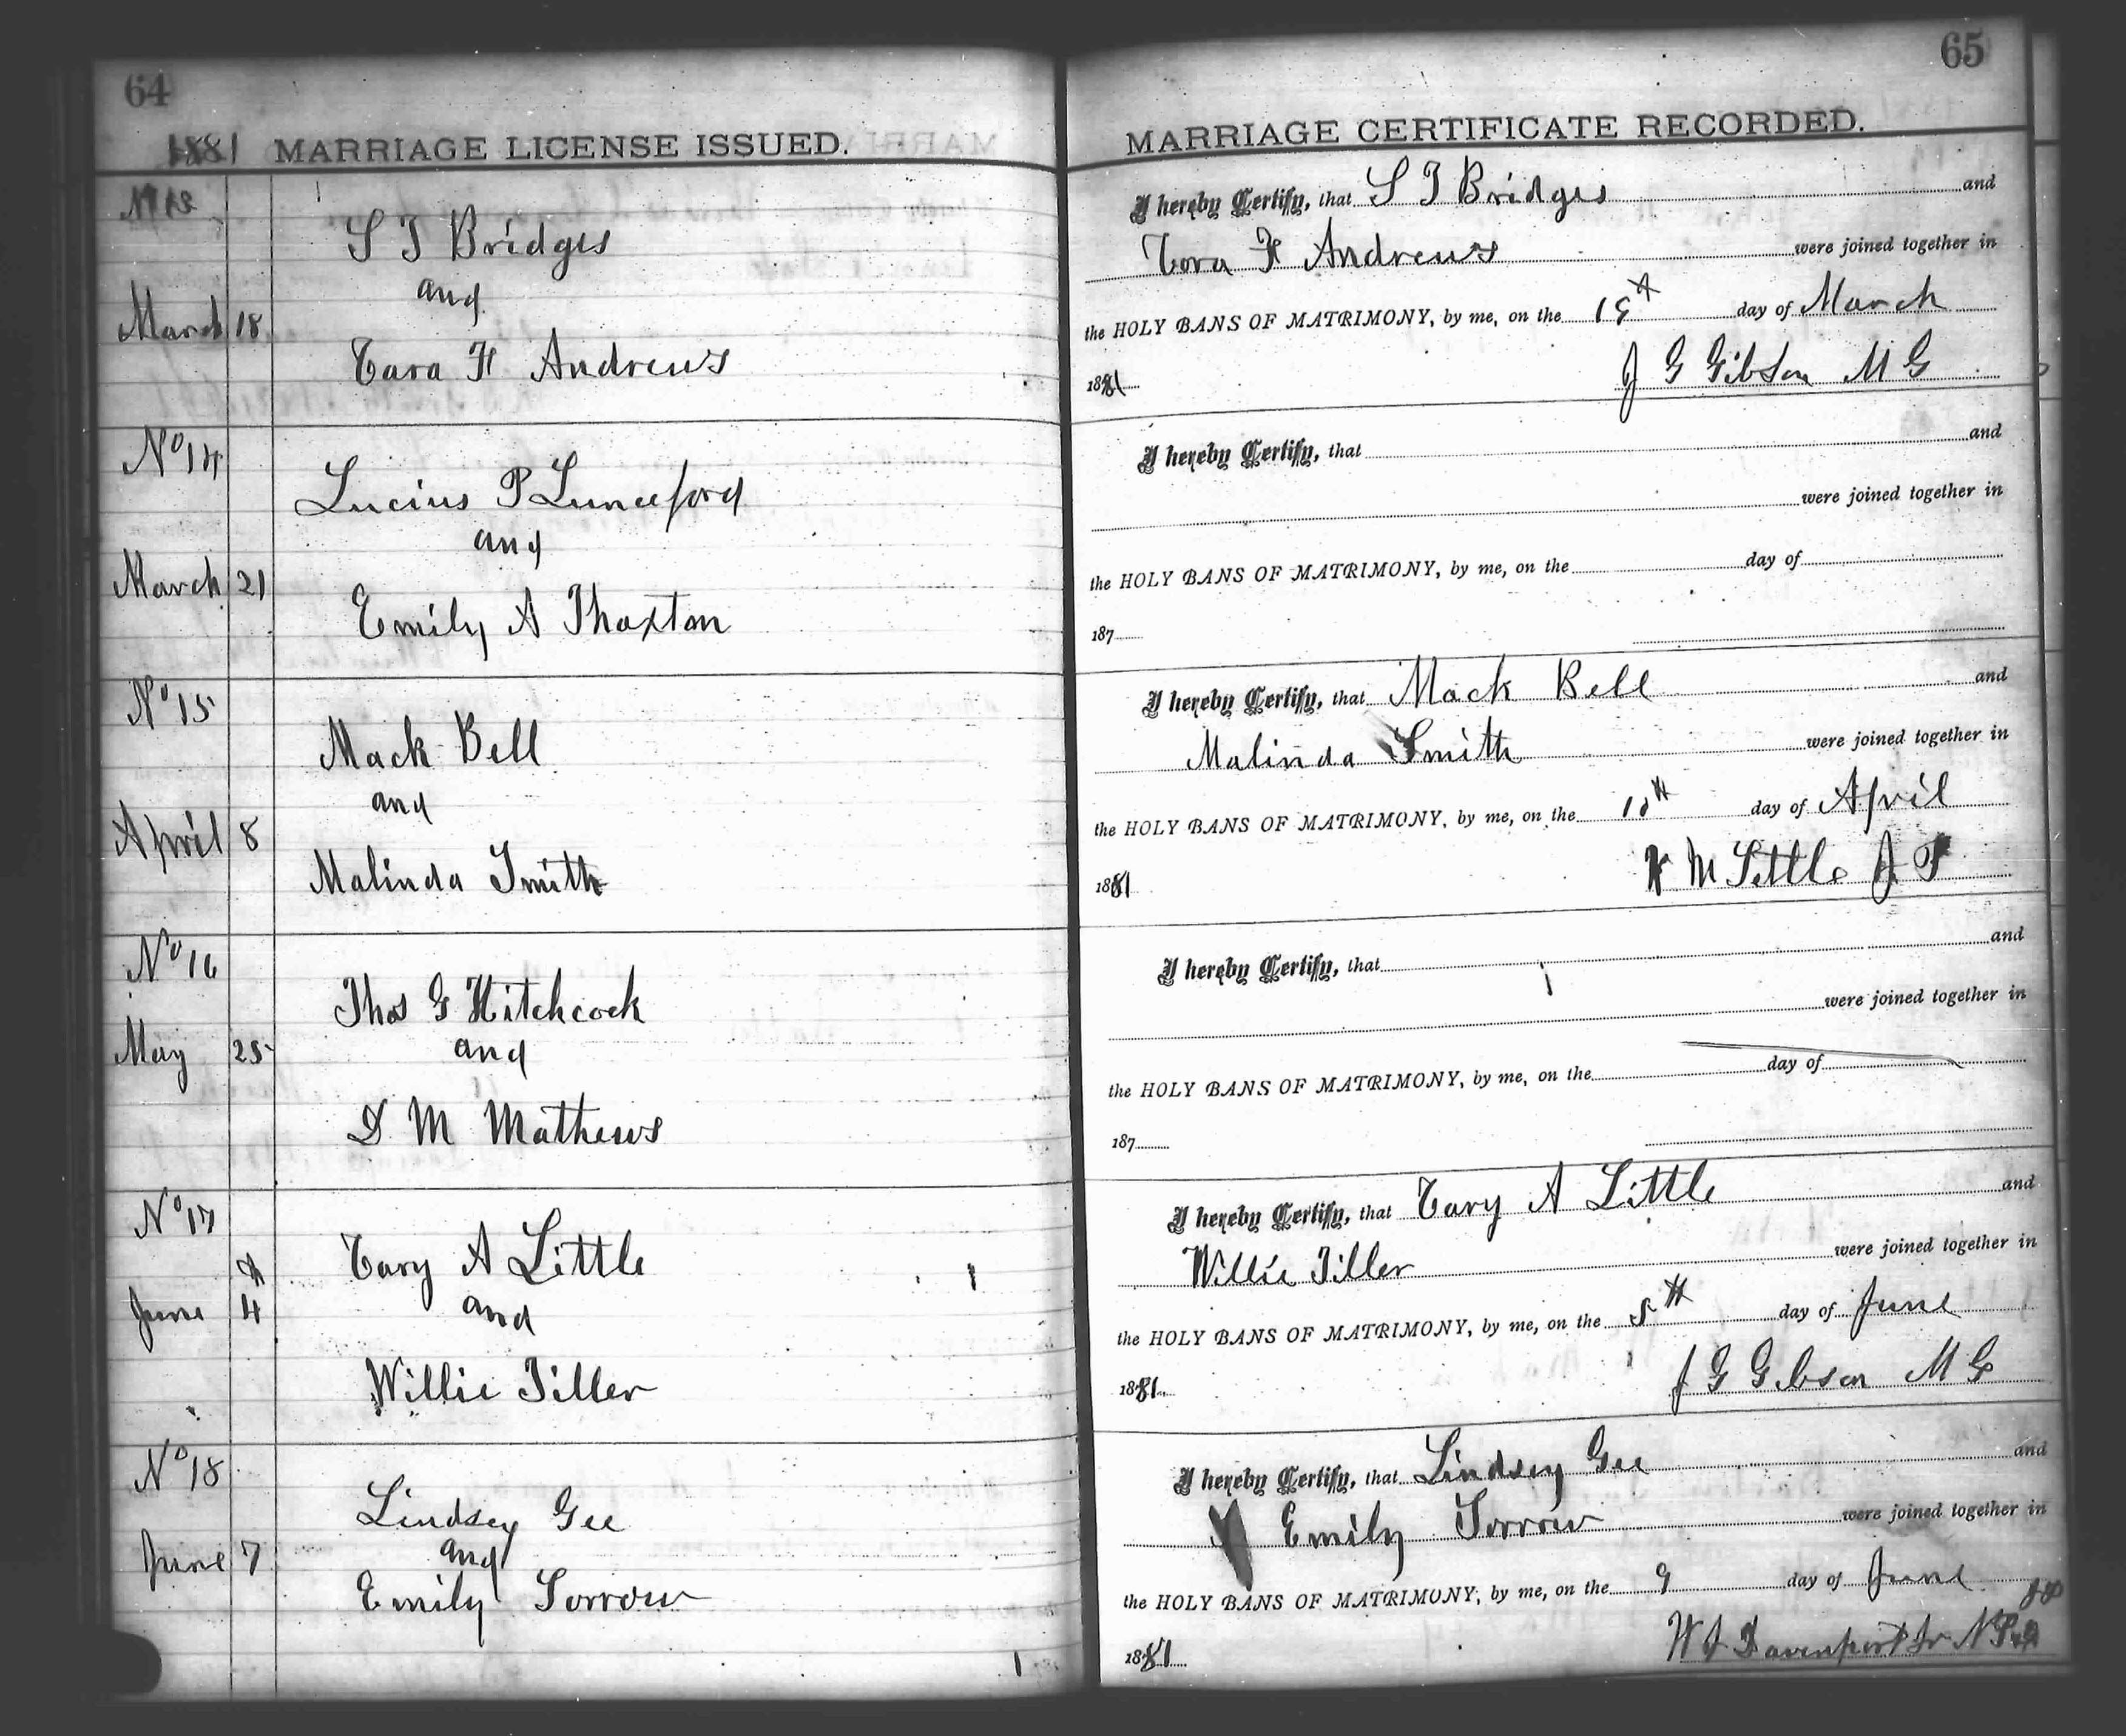 64
1881 MARRIAGE LICENSE ISSUED.
No 13
S T Bridges
and
March 18
Cora H Andrews
No 14
Lucius P Lunceford
and
March 21
Emily A Thaxton
No 15
Mack Bell
and
April 8
Malinda Smith
No 16
Thos G Hitchcock
May 25
and
D M Mathews
No 17
Cary A Little
June 4th
and
Willie Tiller
No 18
Lindsey Gee
and
June 7
Emily Sorrow
65
MARRIAGE CERTIFICATE RECORDED.
I hereby Certify, that S T Bridges and
Cora H Andrews were joined together in
the HOLY BANS OF MATRIMONY, by me, on the th day of March
1881
J G Gibson M G
I hereby Certify, that and
were joined together in
the HOLY BANS OF MATRIMONY, by me, on the day of
187
I hereby Certify, that Mack Bell and
Malinda Smith were joined together in
the HOLY BANS OF MATRIMONY, by me, on the 10th day of April
1881
M Little J P
I hereby Certify, that and
were joined together in
the HOLY BANS OF MATRIMONY, by me, on the day of
187
I hereby Certify, that Cary A Little and
Willie Tiller were joined together in
the HOLY BANS OF MATRIMONY, by me, on the 5th day of June
1881
J G Gibson M G
I hereby Certify, that Lindsey Gee and
Emily Sorrow were joined together in
the HOLY BANS OF MATRIMONY, by me, on the 9 day of June
1881
W J Davenport Jr N P